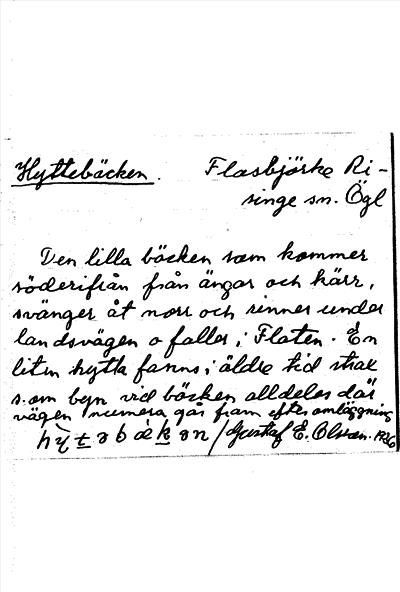 Hyttebäcken. Flasbjörke Ri-
singe sn. Ögl
Den lilla bäcken som kommer
söderifrån från ängar och kärr,
svänger åt norr och rinner under
landsvägen o faller i Flaten. En
liten hytta fanns i äldre tid strax
s. om byn vid bäcken alldeles där
vägen numera går fram efter omläggning
/Gustaf E. Olsson. 1926